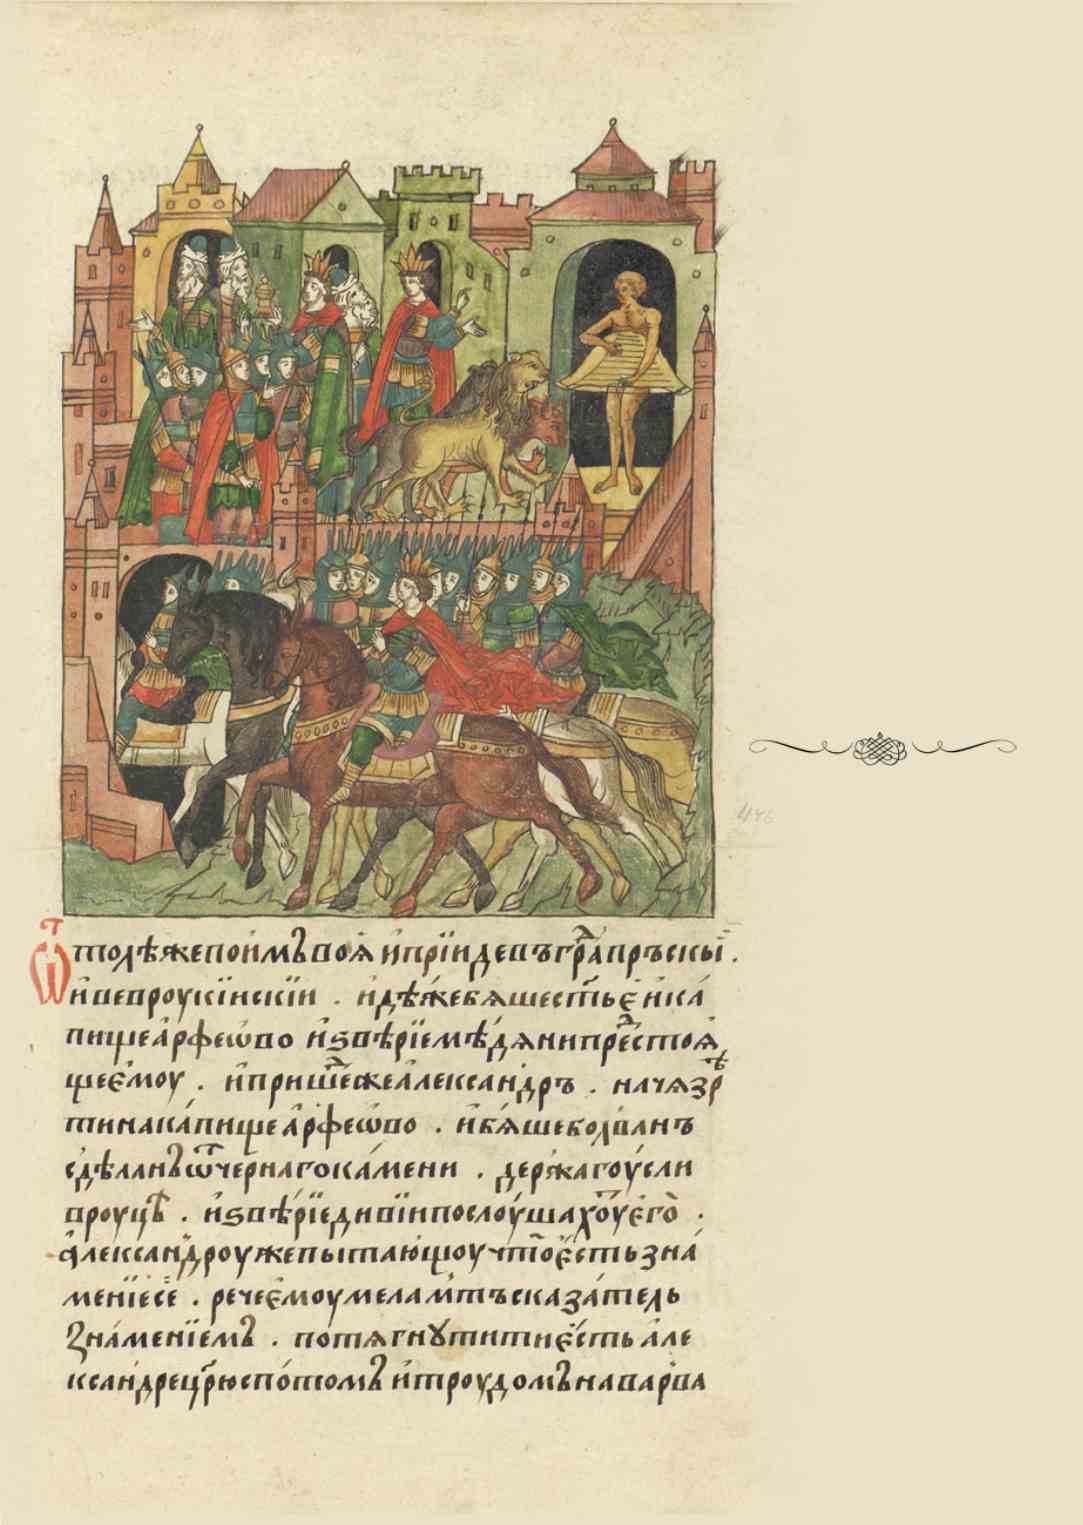 Ѿтолѣже поимъ воя и прїиде въ гра҃ пръскыї .
и веврѹкїискїи . идѣже бѧше стьѐ и ка
пище а́рфеѡво и ѕвѣрїе мѣ́дяни пре҃стоя
щеѐмоу . и прише҃же а҆леѯандръ . нача зрѣ
ти на ка́пище а́рфеѡво . и бѧ́ше болванъ
сдѣланъ ѿ черна го ка́мени . держа гоу́сли
вроуцѣ . и ѕвѣ́рїе дивїи послоу́шахоу є҆го̀ .
а҆леѯандроу же пытающоу что̀ є҆сть зна́
менїе сѐ . рече є҆моу меламтъ сказа́тель
зна́менїемъ . потягнꙋти ти є҆́сть а҆ле
ѯандре цр҃ю спо́томъ и троудомъ на варва
446